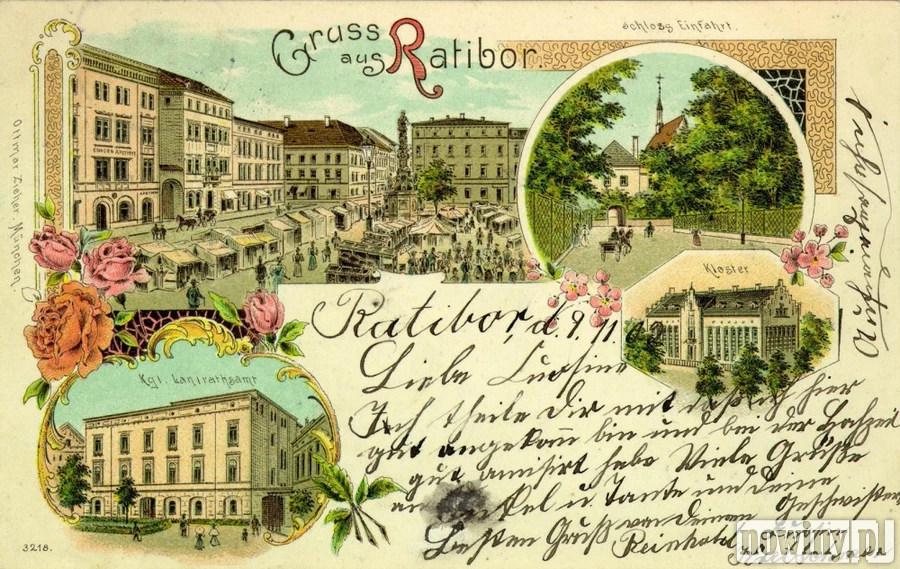 Gruss
aus Ratibor.
Schloss Einfahrt.
Ottmar Zieher, München
EINHORN APOTHEKE
Kloster
Kgl. Landrathsamt
3218.
Ratibor, d. 9. 11.
Liebe
Ich theile Dir mit daß ich hier
gut angekom bin und bei der Hochzeit
gut amisirt habe Viele Grüße
an Onkel u Tante und deine Geschwister
Besten Gruß von deinem
Reinhold
nowiny.pl